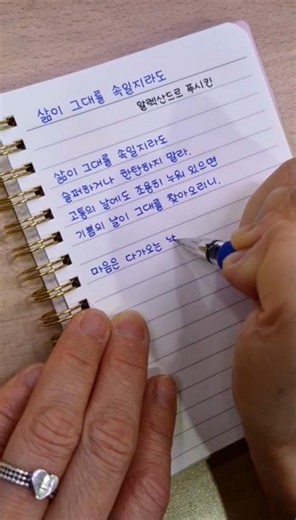 삶이 그대를 속일지라도
알렉산드르 푸시킨
삶이 그대를 속일지라도
슬퍼하거나 한탄하지 말라.
고통의 날에도 조용히 누워 있으면
기쁨의 날이 그대를 찾아오리니.
마음은 다가오는